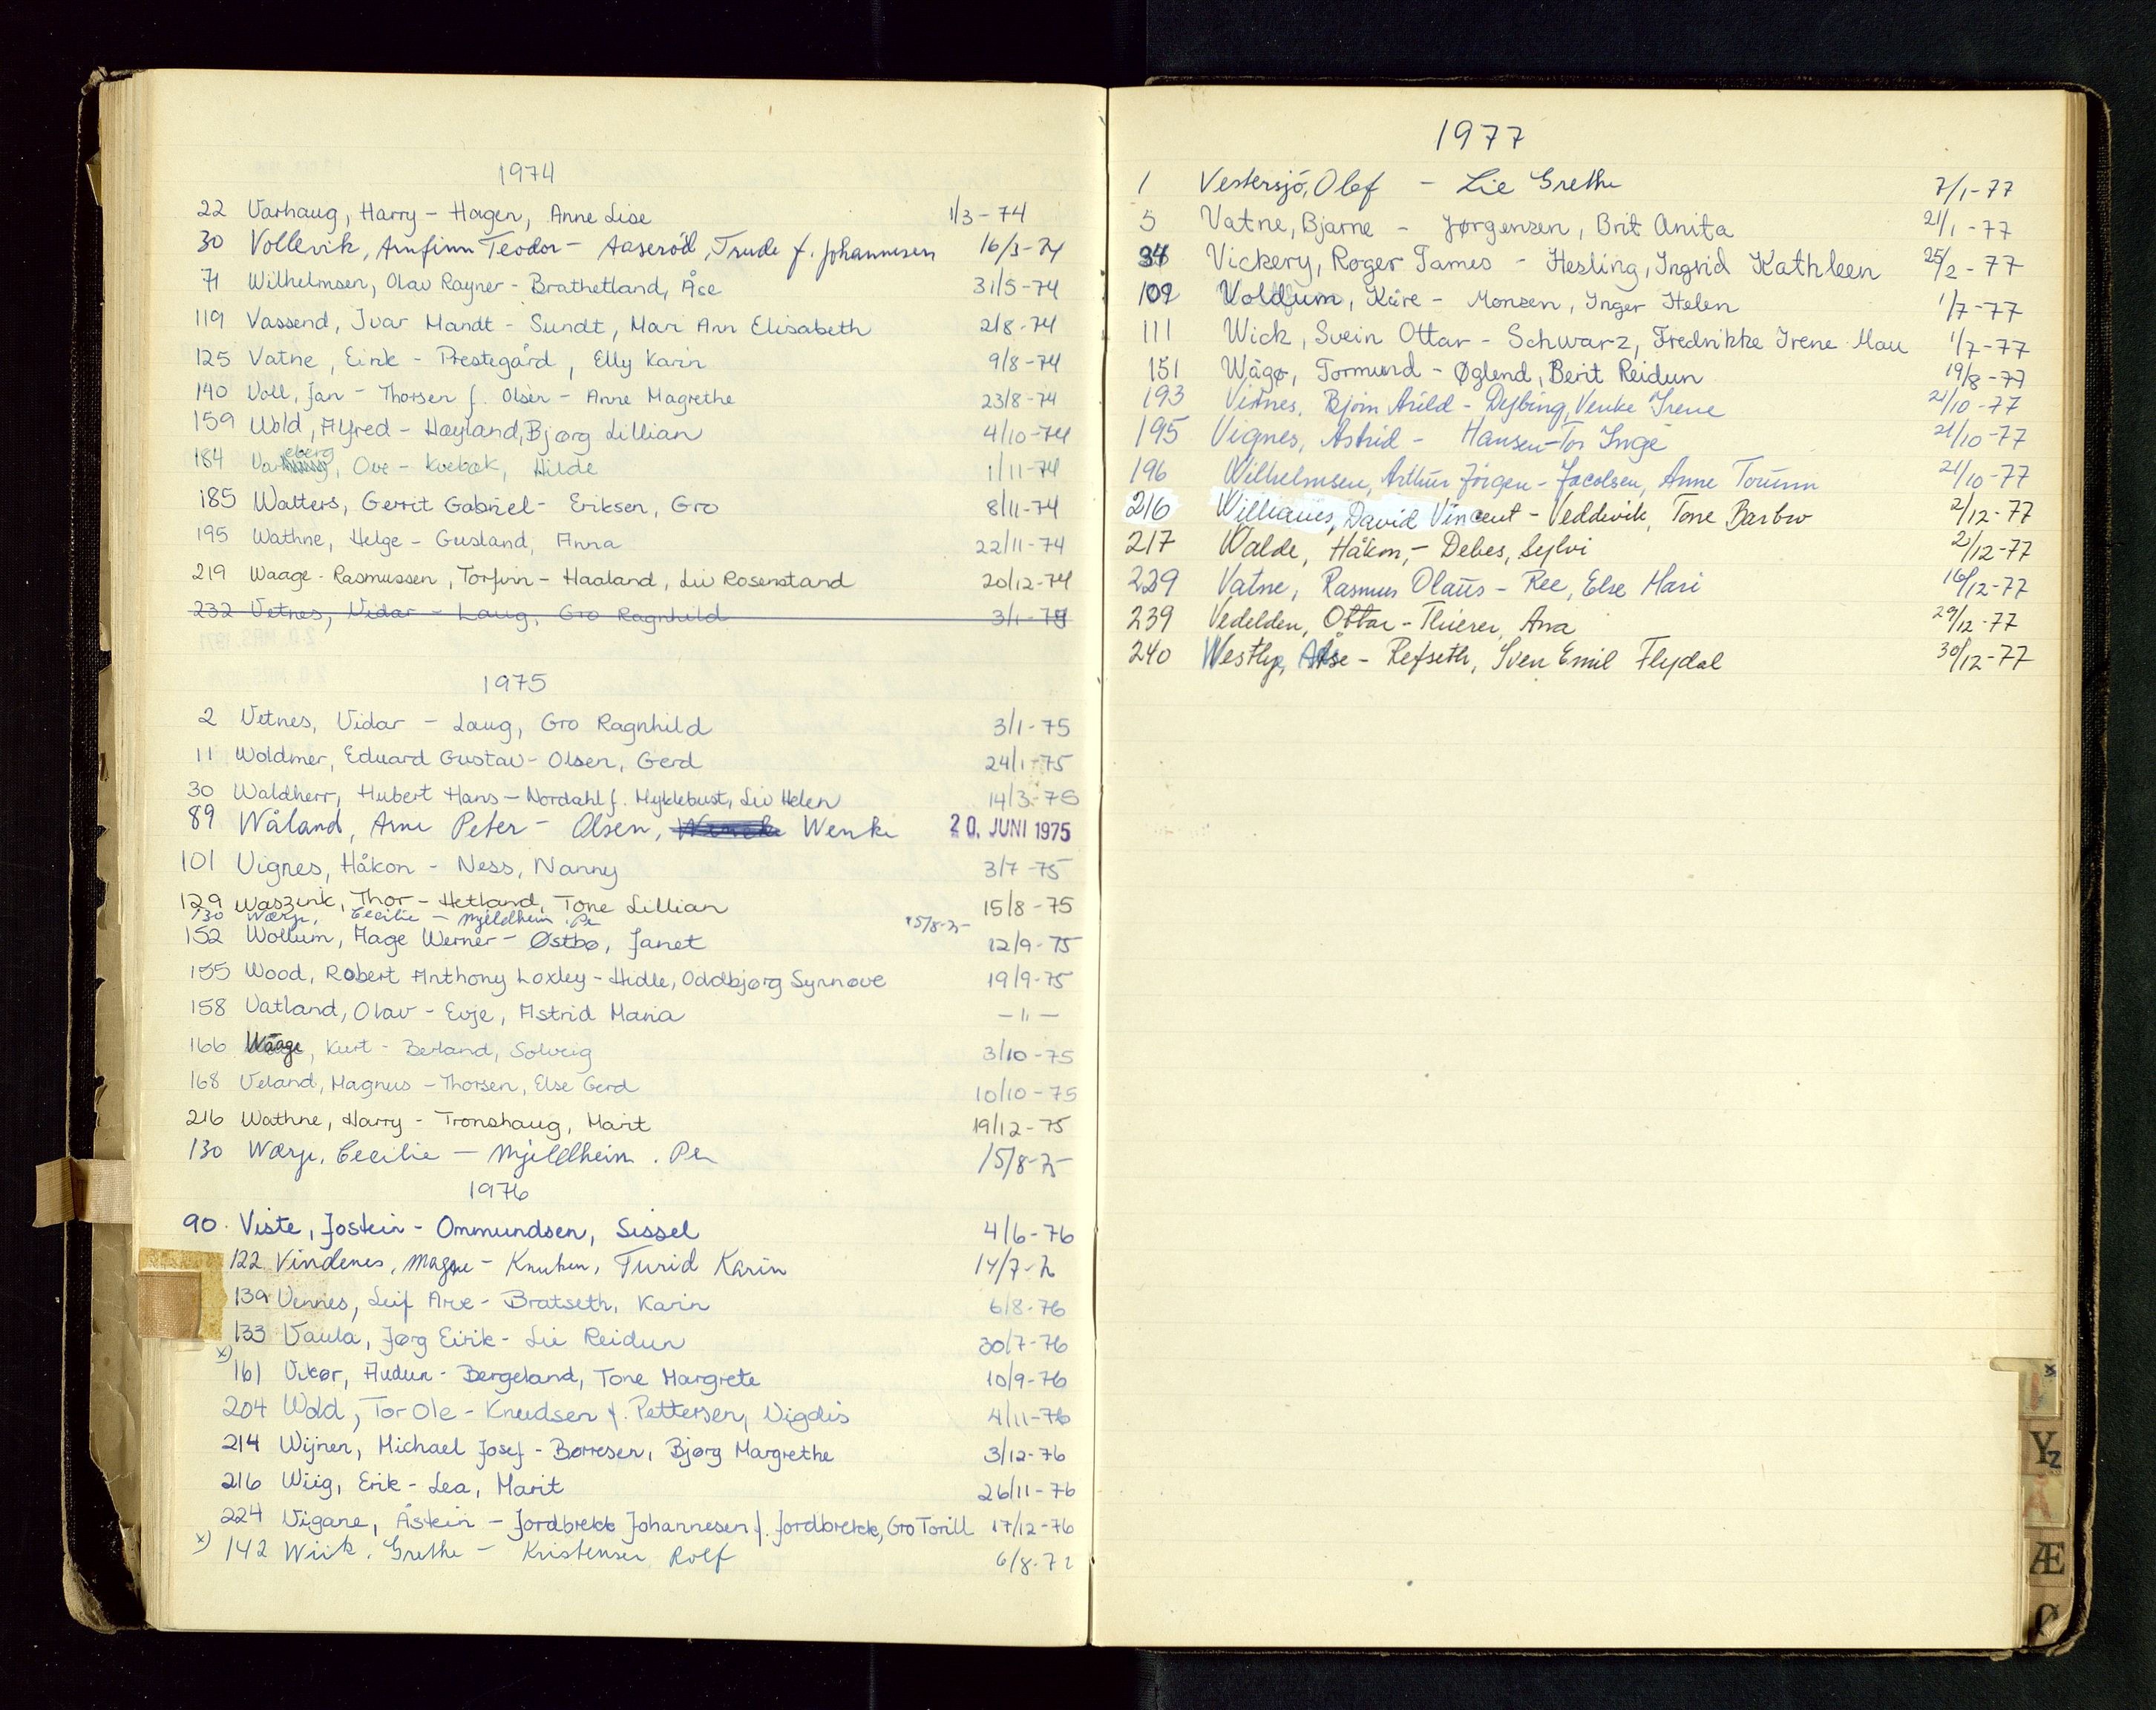 1974
22 Varhaug, Harry - Hagen, Anne Lise 1/3-74
30 Vollevik, Arnfinn Teodor - Aaserød, Trude f. Johannesen 16/3-74
71 Wilhelmsen, Olav Rayner - Brathetland, Åse 31/5-74
119 Vassend, Ivar Mandt - Sundt, Mari Ann Elisabeth 2/8-74
125 Vatne, Eirik - Prestegård, Elly Karin 9/8-74
140 Voll, Jan - Thorsen f. Olsen - Anne Magrethe 23/8-74
159 Wold, Alfred - Høyland, Bjørg Lillian 4/10-74
184 Vareberg, Ove - Kvebæk, Hilde 1/11-74
185 Walters, Gerrit Gabriel - Eriksen, Gro 8/11-74
195 Wathne, Helge - Gusland, Anna 22/11-74
219 Waage-Rasmussen, Torfinn - Haaland, Liv Rosenstand 20/12-74
232 Vetnes, Vidar - Laug, Gro Ragnhild 3/1-75
1975
2 Vetnes, Vidar - Laug, Gro Ragnhild 3/1-75
11 Woldmer, Eduard Gustav - Olsen, Gerd 24/1-75
30 Waldherr, Hubert Hans - Nordahl f. Myklebust, Liv Helen 14/3-75
89 Wåland, Arne Peter - Olsen, Wenke 20. JUNI 1975
101 Vignes, Håkon - Ness, Nanny 3/7-75
129 Waszink, Thor - Hetland, Tone Lillian 15/8-75
130 Wærp, Cecilie - Mjeldheim. Per 15/8-75
152 Wollum, Hage Werner - Østbø, Janet 12/9-75
155 Wood, Robert Anthony Loxley - Hidle, Oddbjørg Synnøve 19/9-75
158 Vatland, Olav - Evje, Astrid Maria - " -
166 Waage, Kurt - Berland, Solveig 3/10-75
168 Veland, Magnus - Thorsen, Else Gerd 10/10-75
216 Wathne, Harry - Tronshaug, Marit 19/12-75
130 Wærp, Cecilie - Mjeldheim. Per 15/8-75
1976
90. Viste, Jostein - Ommundsen, Sissel 4/6-76
122 Vindenes, Magne - Knutsen, Turid Karin 14/7-76
139 Vennes, Leif Arve - Bratseth, Karin 6/8-76
133 Vaula, Jørg Eirik - Lie Reidun 30/7-76
x)
161 Vikør, Audun - Bergeland, Tone Margrete 10/9-76
204 Wold, Tor Ole - Knudsen f. Pettersen, Vigdis 4/11-76
214 Wijnen, Michael Josef - Børresen, Bjørg Margrethe 3/12-76
216 Wiig, Erik - Lea, Marit 26/11-76
224 Vigane, Åstein - Jordbrekk Johannesen f. Jordbrekk, Gro Torill 17/12-76
x) 142 Wiik. Grethe - Kristensen Rolf 6/8-76
1977
1 Vestersjö, Olof - Lie Grethe 7/1-77
5 Vatne, Bjarne - Jørgensen, Brit Anita 21/1-77
34 Vickery, Roger James - Hesling, Ingrid Kathleen 25/2-77
109 Voldsum, Kåre - Monsen, Inger Helen 1/7-77
111 Wick, Svein Ottar - Schwarz, Fredrikke Irene Mau 1/7-77
151 Wågø, Tormund - Øglend, Berit Reidun 19/8-77
193 Vitnes, Bjørn Arild - Dybing, Venke Irene 21/10-77
195 Vignes, Astrid - Hansen Tor Inge 21/10-77
196 Wilhelmsen, Arthur Jörgen - Jacobsen, Anne Torunn 21/10-77
216 Williams, David Vincent - Veddevik, Tone Barbro 2/12-77
217 Walde, Håkon, - Debes, Sylvi 2/12-77
229 Vatne, Rasmus Olaus - Ree, Else Mari 16/12-77
239 Vedelden, Ottar - Thierer, Ana 29/12-77
240 Westly, Åse - Refseth, Sven Emil Flydal 30/12-77
Yz
Å
Æ
Ø